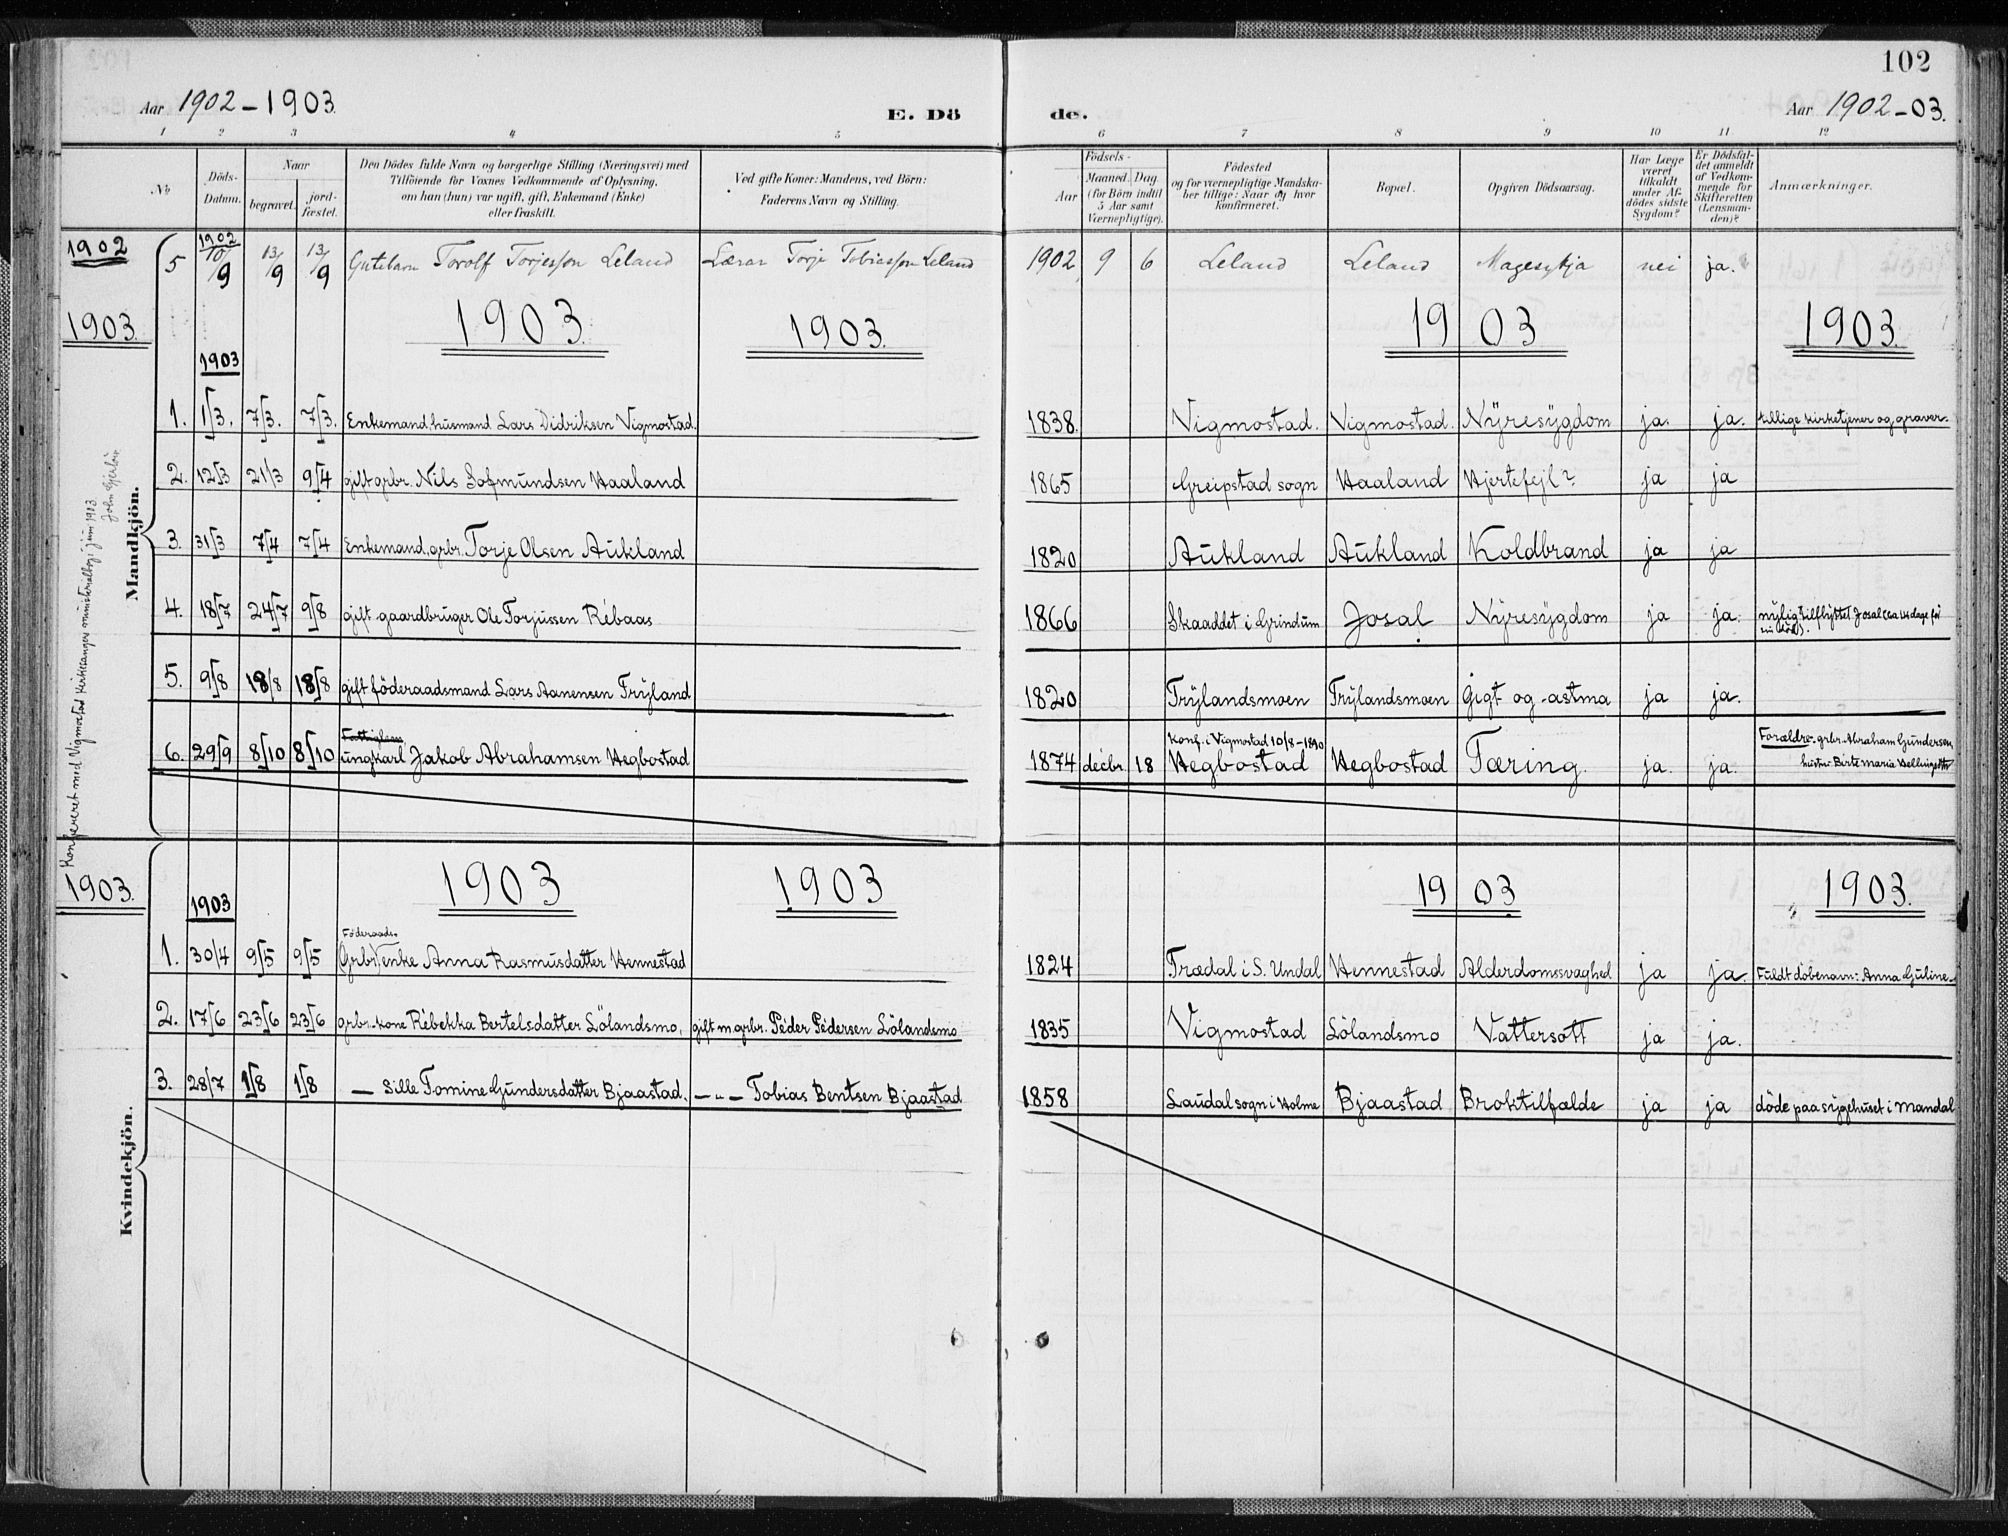 102
Aar 1902 - 1903. E. Dö de. Aar 1902 - 03.
1 2 3 4 5 6 7 8 9 10 11 12
No
Döds-Datum.
Naar
begravet.
jord-fæstet.
Den Dödes fulde Navn og borgerlige Stilling (Næringsvei) med
Tilföiende for Voxnes Vedkommende af Oplysning,
om han (hun) var ugift, gift, Enkemand (Enke)
eller fraskilt.
Ved gifte Koner: Mandens, ved Börn:
Faderens Navn og Stilling.
Födsels-
Aar
Maaned. Dag.
(for Börn indtil
5 Aar samt
Værnepligtige).
Födested
og for værnepligtige Mandska-
ber tillige: Naar og hvor
konfirmeret.
Bopæl.
Opgiven Dödsaarsag.
Har Læge
været
tilkaldt
under Af-
dödes sidste
Sygdom?
Er Dödsfal-
det anmeldt
af Vedkom-
mende for
Skifteretten
(Lensman-
den)?
Anmærkninger.
1902
1902
5 10/9 13/9 13/9 Gutebarn Torolf Torjesson Leland Lærar Torje Tobiasson Leland 1902 9 6 Leland Leland Magesykja nei ja.
1903. 1903. 1903. 1903 1903.
1903
Mandkjön.
1. 1/3. 7/3. 7/3. Enkemand, husmand Lars Didriksen Vigmostad. 1838. Vigmostad. Vigmostad. Nyresygdom ja. ja. tillige kirketjener og graver.
2. 12/3 21/3 9/4 gift grbr. Nils Sofmundsen Haaland 1865 Greipstad sogn Haaland Hjertefejl? ja ja
3. 31/3 7/4 7/4 Enkemand, grbr. Torje Olsen Aukland 1820 Aukland Aukland Koldbrand ja ja
4. 18/7 24/7 9/8 gift gaardbruger Ole Torjussen Rebaas 1866 Skaaddet i Grindum Josal Nyresygdom ja ja. nylig tilflyttet Josal
5. 9/8 18/8 18/8 gift föderaadsmand Lars Aanensen Fryland 1820 Frylandsmoen Frylandsmoen Gigt og astma ja ja.
6. 29/9 8/10 8/10 Fattiglem ungkarl Jakob Abrahamsen Hegbostad 1874 decbr. 18 Konf. i Vigmostad 10/8-1890 Hegbostad Hegbostad Tæring. ja. ja. Forældre: grbr. Abraham Gundersen,
hustru Birte Maria
Konfereret med Vigmostad kirkesangers ministerialbog i juni 1903.
John
1903. 1903 1903 1903 1903.
1903
Kvindekjön.
1. 30/4 9/5 9/5 Föderaads- (Grbr.) enke Anna Rasmusdatter Hennestad 1824 Trædal i S. Undal Hennestad Alderdomssvaghed ja ja. Fuldt döbenavn: Anna Guline.
2. 17/6 23/6 23/6 grbr.-kone Rebekka Bertelsdatter Lölandsmo, gift m. grbr. Peder Pedersen Lölandsmo 1835 Vigmostad Lölandsmo Vattersott ja ja.
3. 28/7 1/8 1/8 — Sille Tomine Gundersdatter Bjaastad. — „ — Tobias Bentsen Bjaastad 1858 Laudal sogn i Holme Bjaastad Broktilfælde ja ja döde paa sygehuset i Mandal